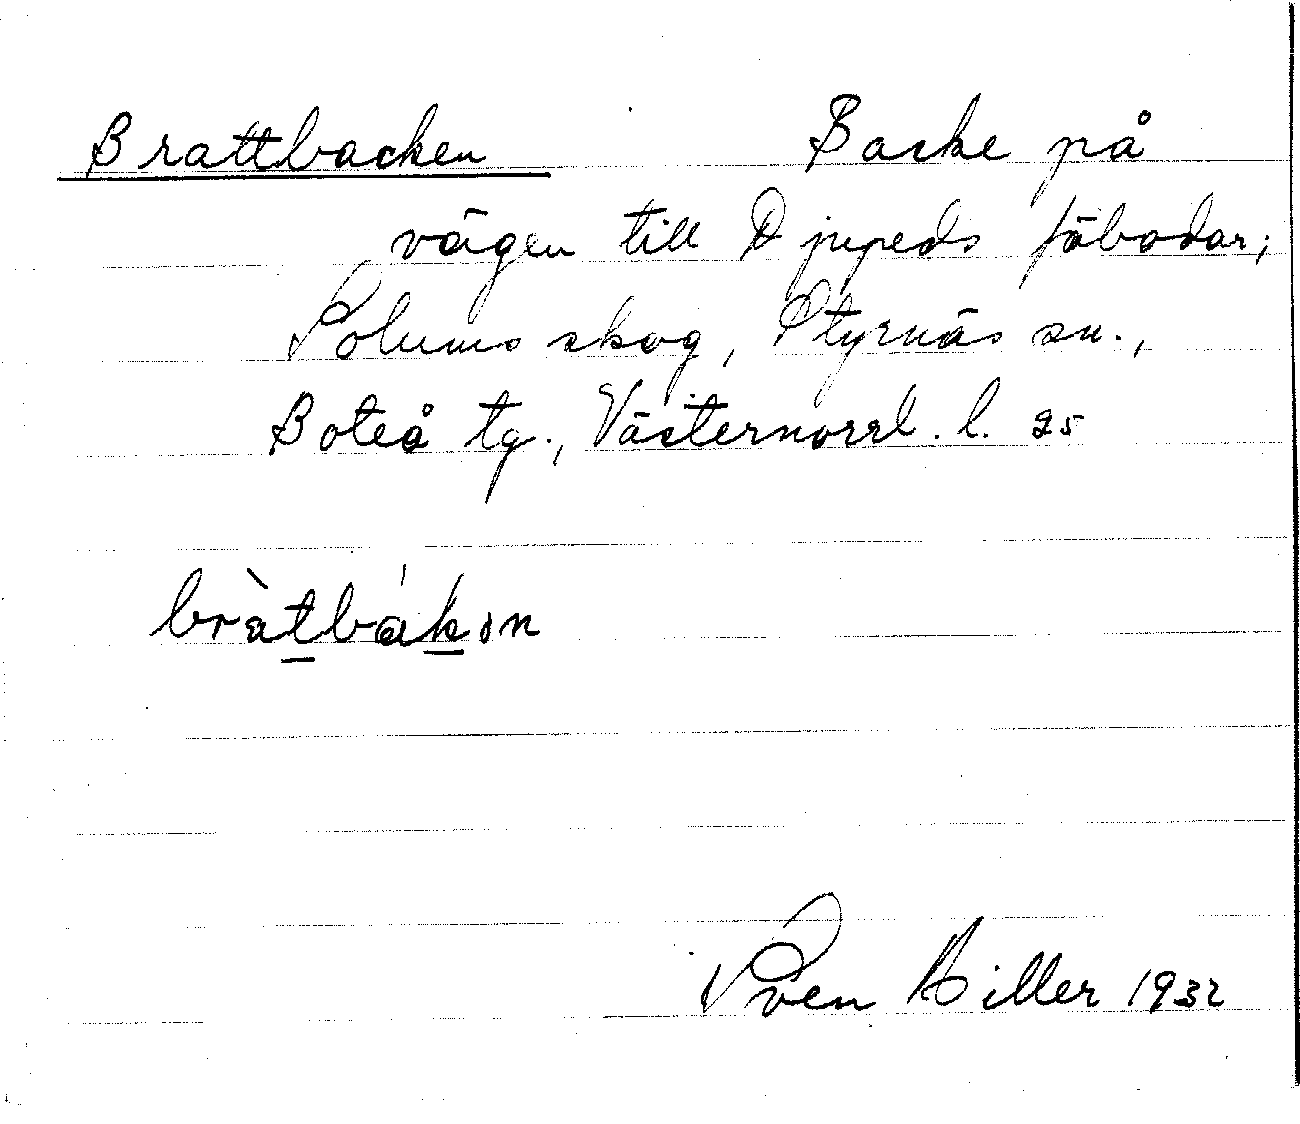 Brattbacken Backe på
vägen till Djupeds fäbodar;
Solums skog, Styrnäs sn.,
Boteå tg., Västernorrl. l. 25
bràtbákən
Sven Hiller 1932